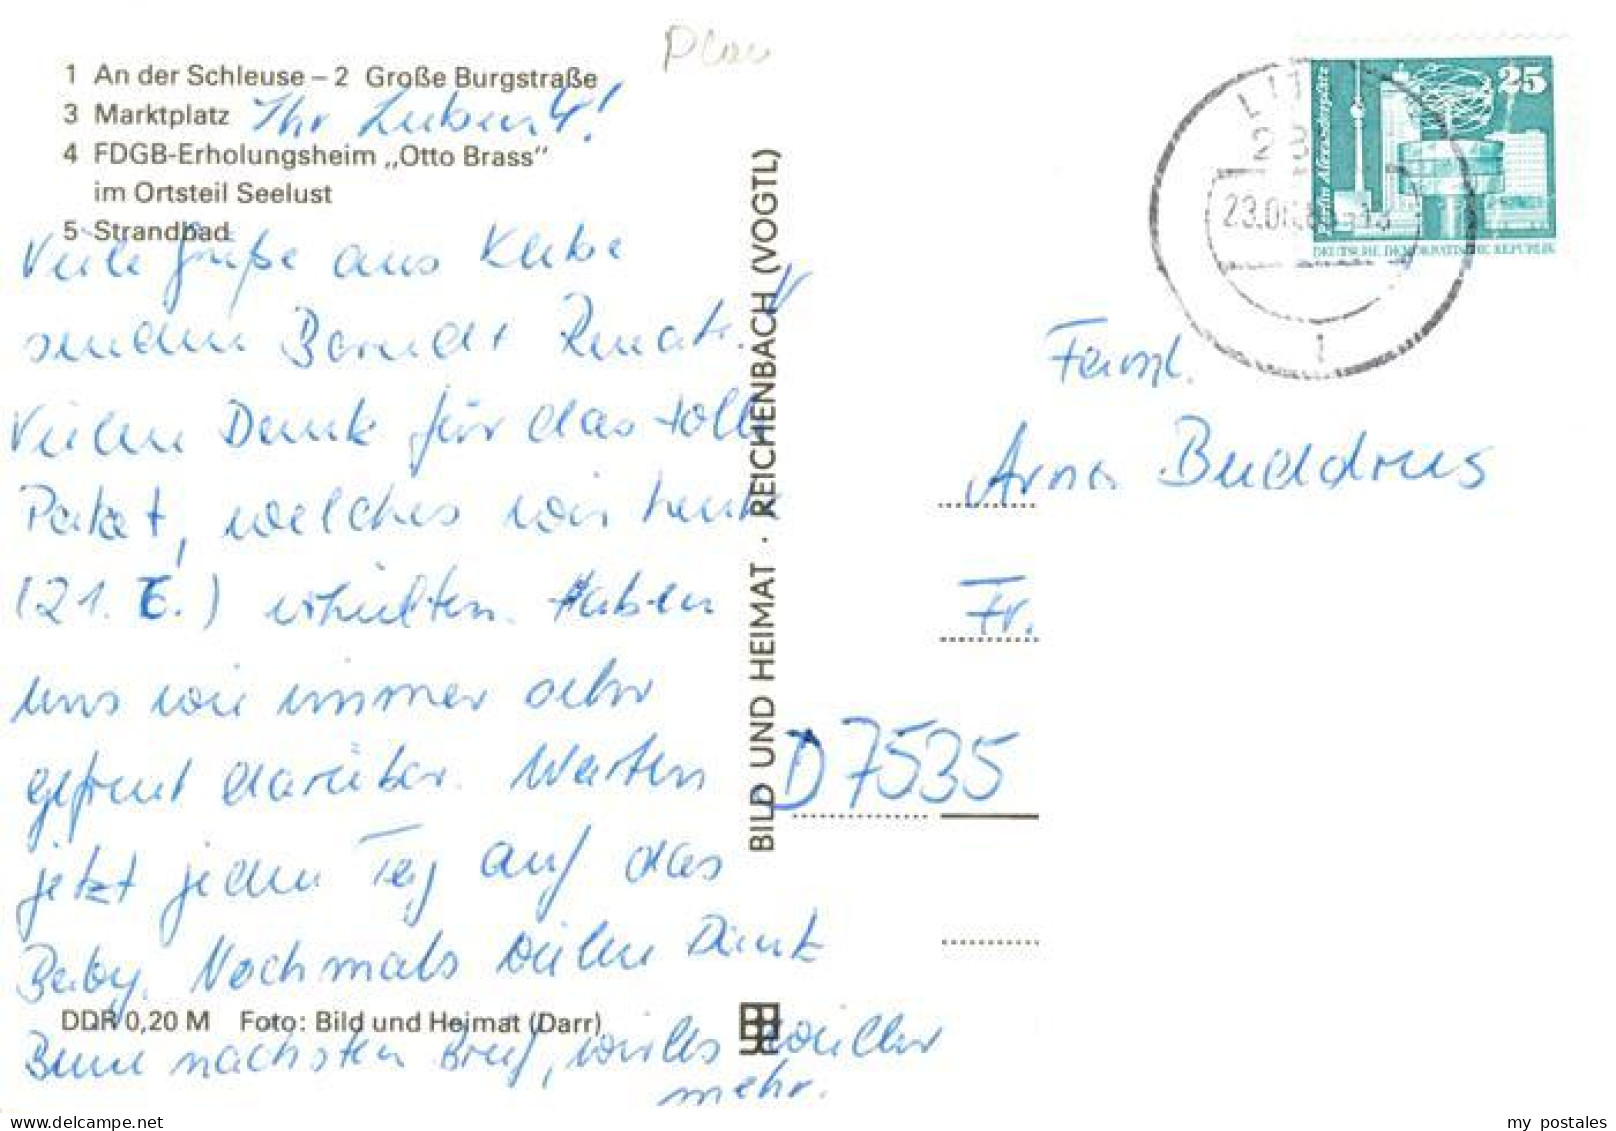 Plau
1 An der Schleuse – 2 Große Burgstraße
3 Marktplatz
Ihr Lieben 4!
4 FDGB-Erholungsheim „Otto Brass"
im Ortsteil Seelust
5 Strandbad
Viele Grüße aus
senden Renate.
Vielen Dank für das tolle
Paket, welches wir heute
(21. 6.) erhielten. Haben
uns wie immer sehr
gefreut darüber. Warten
jetzt jeden Tag auf das
Baby. Nochmals vielen Dank
Beim nächsten Brief, wieder
mehr.
DDR 0,20 M Foto: Bild und Heimat (Darr)
BILD UND HEIMAT · REICHENBACH (VOGTL)
25
Berlin Alexanderplatz
DEUTSCHE DEMOKRATISCHE REPUBLIK
23.06.
1
Faml.
Arno Buddrus
Fr.
D 7535
my postales
www.delcampe.net